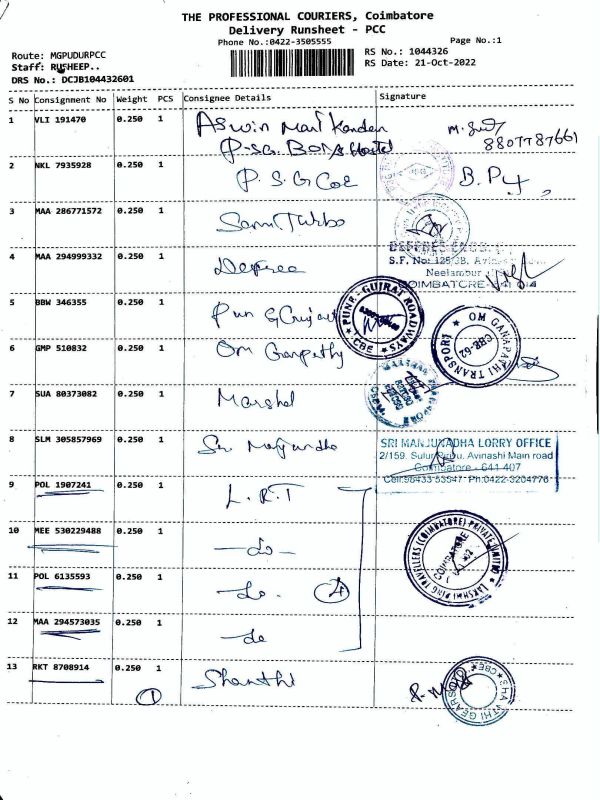 THE PROFESSIONAL COURIERS, Coimbatore
Delivery Runsheet - PCC
Phone No.:0422-3505555
Page No.:1
Route: MGPUDURPCC
Staff: RUSHEEP..
DRS No.: DCJB104432601
RS No.: 1044326
RS Date: 21-Oct-2022
S No Consignment No Weight PCS Consignee Details Signature
1 VLI 191470 0.250 1 Aswin Mari Kanden
P.S.G. Boys Hostel
8807787661
2 NKL 7935928 0.250 1 P.S.G CoE
3 MAA 286771572 0.250 1 Sam Turbo
4 MAA 294999332 0.250 1 Defree
S.F. No: 125/3B, Avinashi
Neelambur
COIMBATORE-
5 BBW 346355 0.250 1 Pun & Gujarat
PUNE-GUJRAT ROADWAYS
CBE
6 GMP 510832 0.250 1 Om Ganpathy
OM GANAPATHI TRANSPORT
CBE-62
7 SUA 80373082 0.250 1 Marshel
8 SLM 305857969 0.250 1 Sri Manjundha
SRI MANJUNADHA LORRY OFFICE
2/159. Sulur Pirivu, Avinashi Main road
Coimbatore - 641 407
Cell:98433 53547 Ph:0422-3204776
9 POL 1907241 0.250 1 L.R.T
10 MEE 530229488 0.250 1 -do-
11 POL 6135593 0.250 1 -do- 4
LAKSHMI RING TRAVELLERS (COIMBATORE) PRIVATE LIMITED
COIMBATORE
12 MAA 294573035 0.250 1 -do
13 RKT 8708914 0.250 1 Shanthi
1
SHANTHI GEARS
CBE